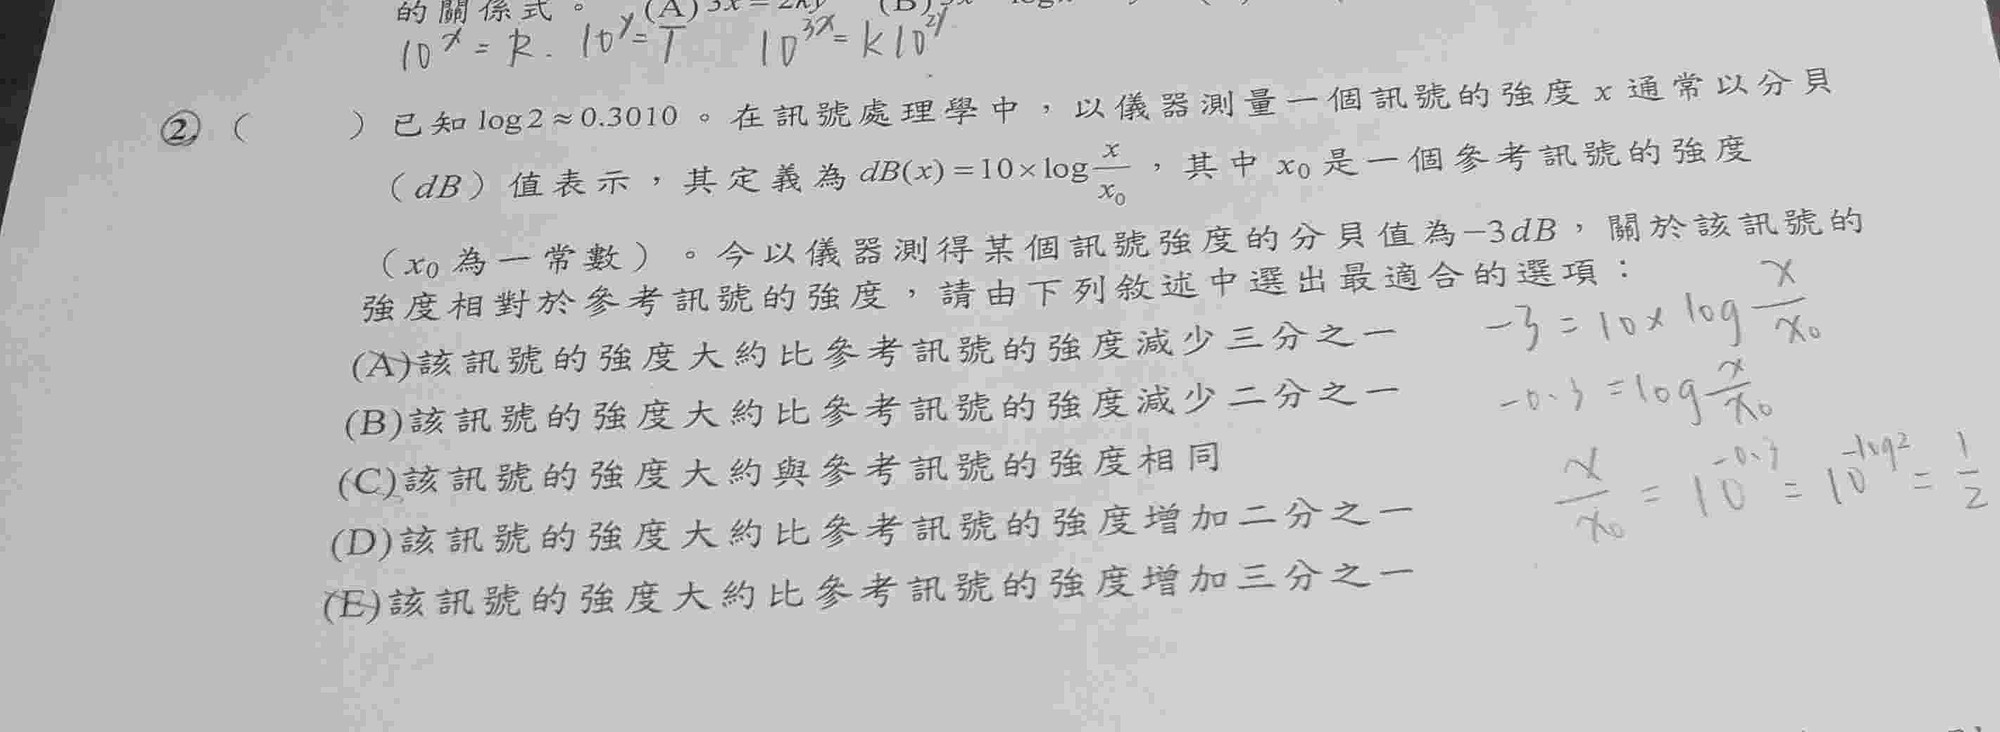 的關係式。 (A) 3x=2ky (B)
10^x = k. 10^y = T 10^{3x} = k10^{2y}
② ( ) 已知 log2≈0.3010。在訊號處理學中，以儀器測量一個訊號的強度 x 通常以分貝
（dB）值表示，其定義為 dB(x)=10×log x/x₀，其中 x₀ 是一個參考訊號的強度
（x₀ 為一常數）。今以儀器測得某個訊號強度的分貝值為−3dB，關於該訊號的
強度相對於參考訊號的強度，請由下列敘述中選出最適合的選項：
(A)該訊號的強度大約比參考訊號的強度減少三分之一
-3 = 10 × log x/x₀
(B)該訊號的強度大約比參考訊號的強度減少二分之一
-0.3 = log x/x₀
(C)該訊號的強度大約與參考訊號的強度相同
x/x₀ = 10^{-0.3} = 10^{-log2} = 1/2
(D)該訊號的強度大約比參考訊號的強度增加二分之一
(E)該訊號的強度大約比參考訊號的強度增加三分之一